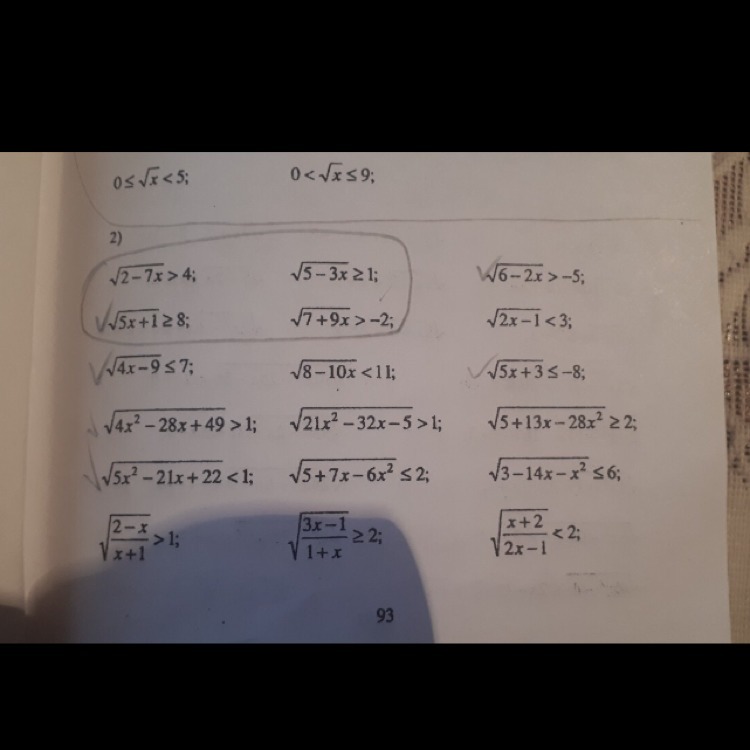 0≤√x<5; 0<√x≤9;
2)
√(2−7x)>4; √(5−3x)≥1; √(6−2x)>−5;
√(5x+1)≥8; √(7+9x)>−2; √(2x−1)<3;
√(4x−9)≤7; √(8−10x)<11; √(5x+3)≤−8;
√(4x²−28x+49)>1; √(21x²−32x−5)>1; √(5+13x−28x²)≥2;
√(5x²−21x+22)<1; √(5+7x−6x²)≤2; √(3−14x−x²)≤6;
√((2−x)/(x+1))>1; √((3x−1)/(1+x))≥2; √((x+2)/(2x−1))<2;
93